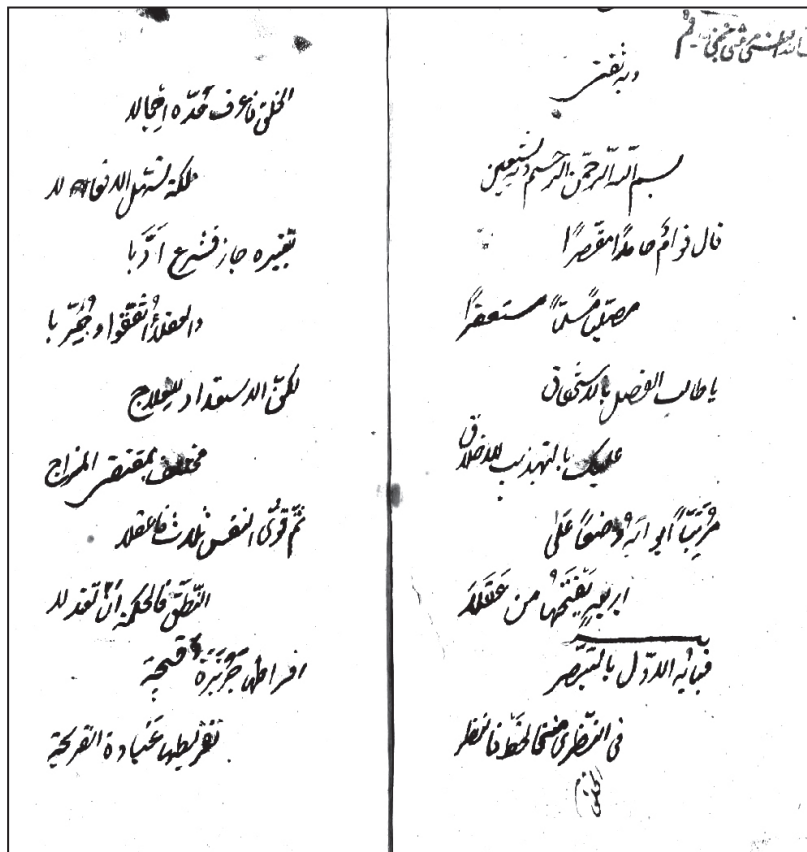 وبه ثقتی
بسم الله الرحمن الرحیم وبه نستعین
قال قوام حامدًا مقصرًا
مصلیًا مسلمًا مستغفرًا
یا طالب الفضل بالاستحقاق
علیك بالتهذیب للاخلاق
مرتبًا ابوابه وضعًا علی
اربعةٍ یفتحها من عقلا
فبابه الاوّل بالتبصّر
فی النظری منتحا لخط فانظر
الخلق
الخلق فاعرف حدّه اجمالا
ملكة تسهل الافعالا
تغییره جاز فشرع ادّبا
والعقلاء اتفقوا وجُرّبا
لکنّ الاستعداد للعلاج
مختلف بمقتضی المزاج
ثم قوی النفس ثلاث فاعقلا
النطق فالحكمة ان تعدلا
افراطها جربزة قبیحة
تفریطها غباوة القریحة